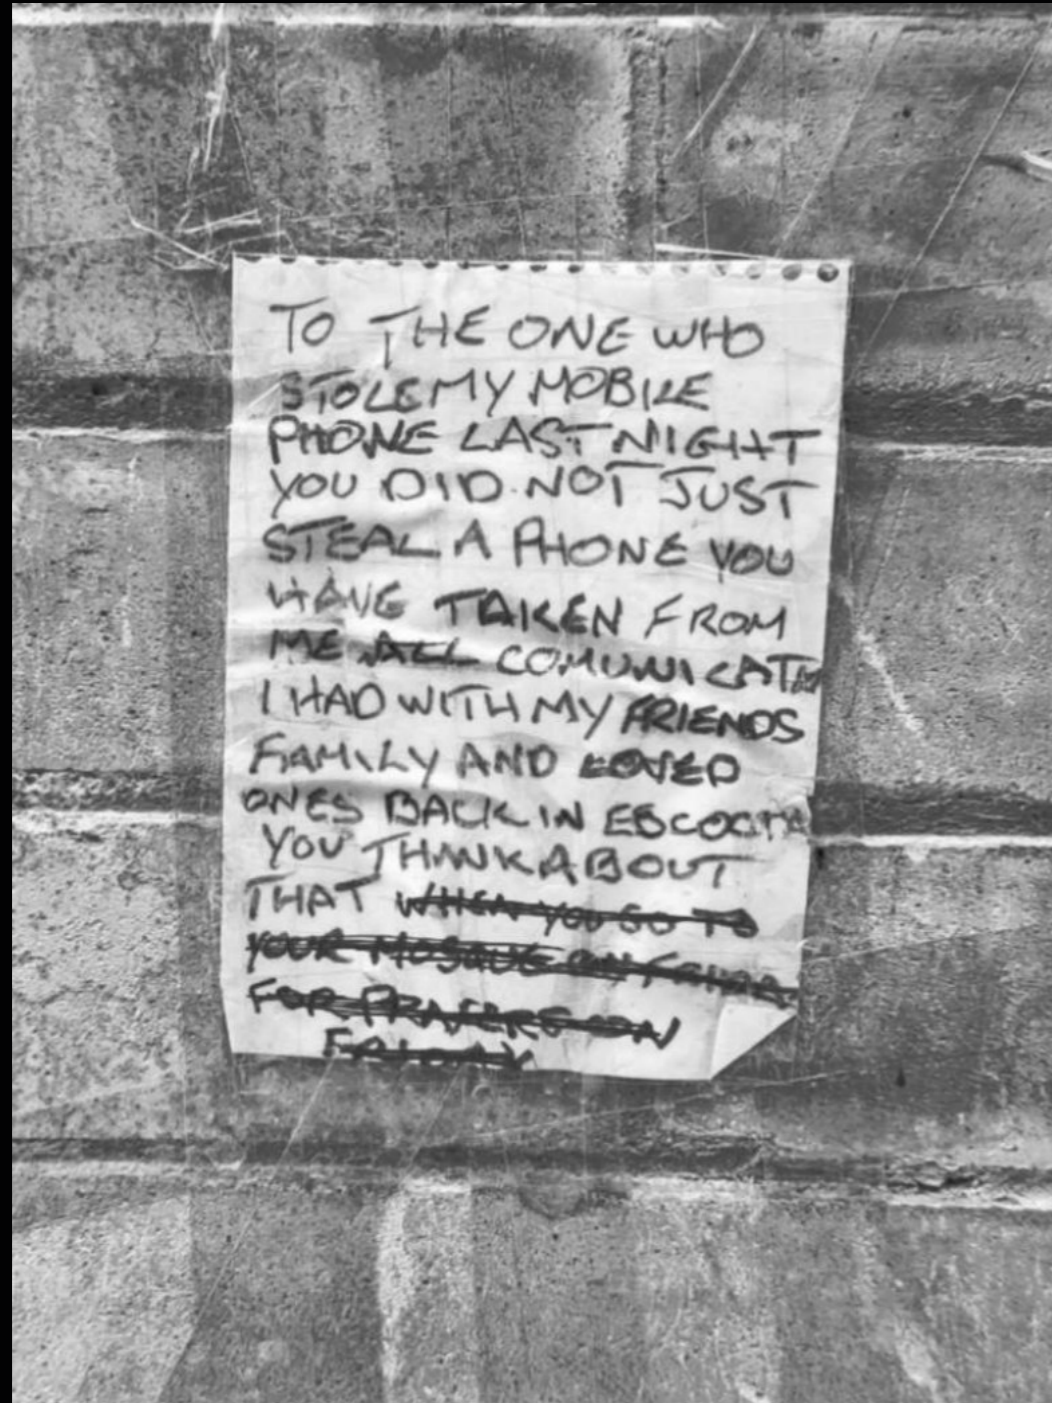 TO THE ONE WHO
STOLE MY MOBILE
PHONE LAST NIGHT
YOU DID NOT JUST
STEAL A PHONE YOU
HAVE TAKEN FROM
ME ALL
I HAD WITH MY FRIENDS
FAMILY AND LOVED
ONES BACK IN
YOU THINK ABOUT
THAT WHEN YOU GO TO
YOUR MOSQUE ON
FOR ON
FRIDAY